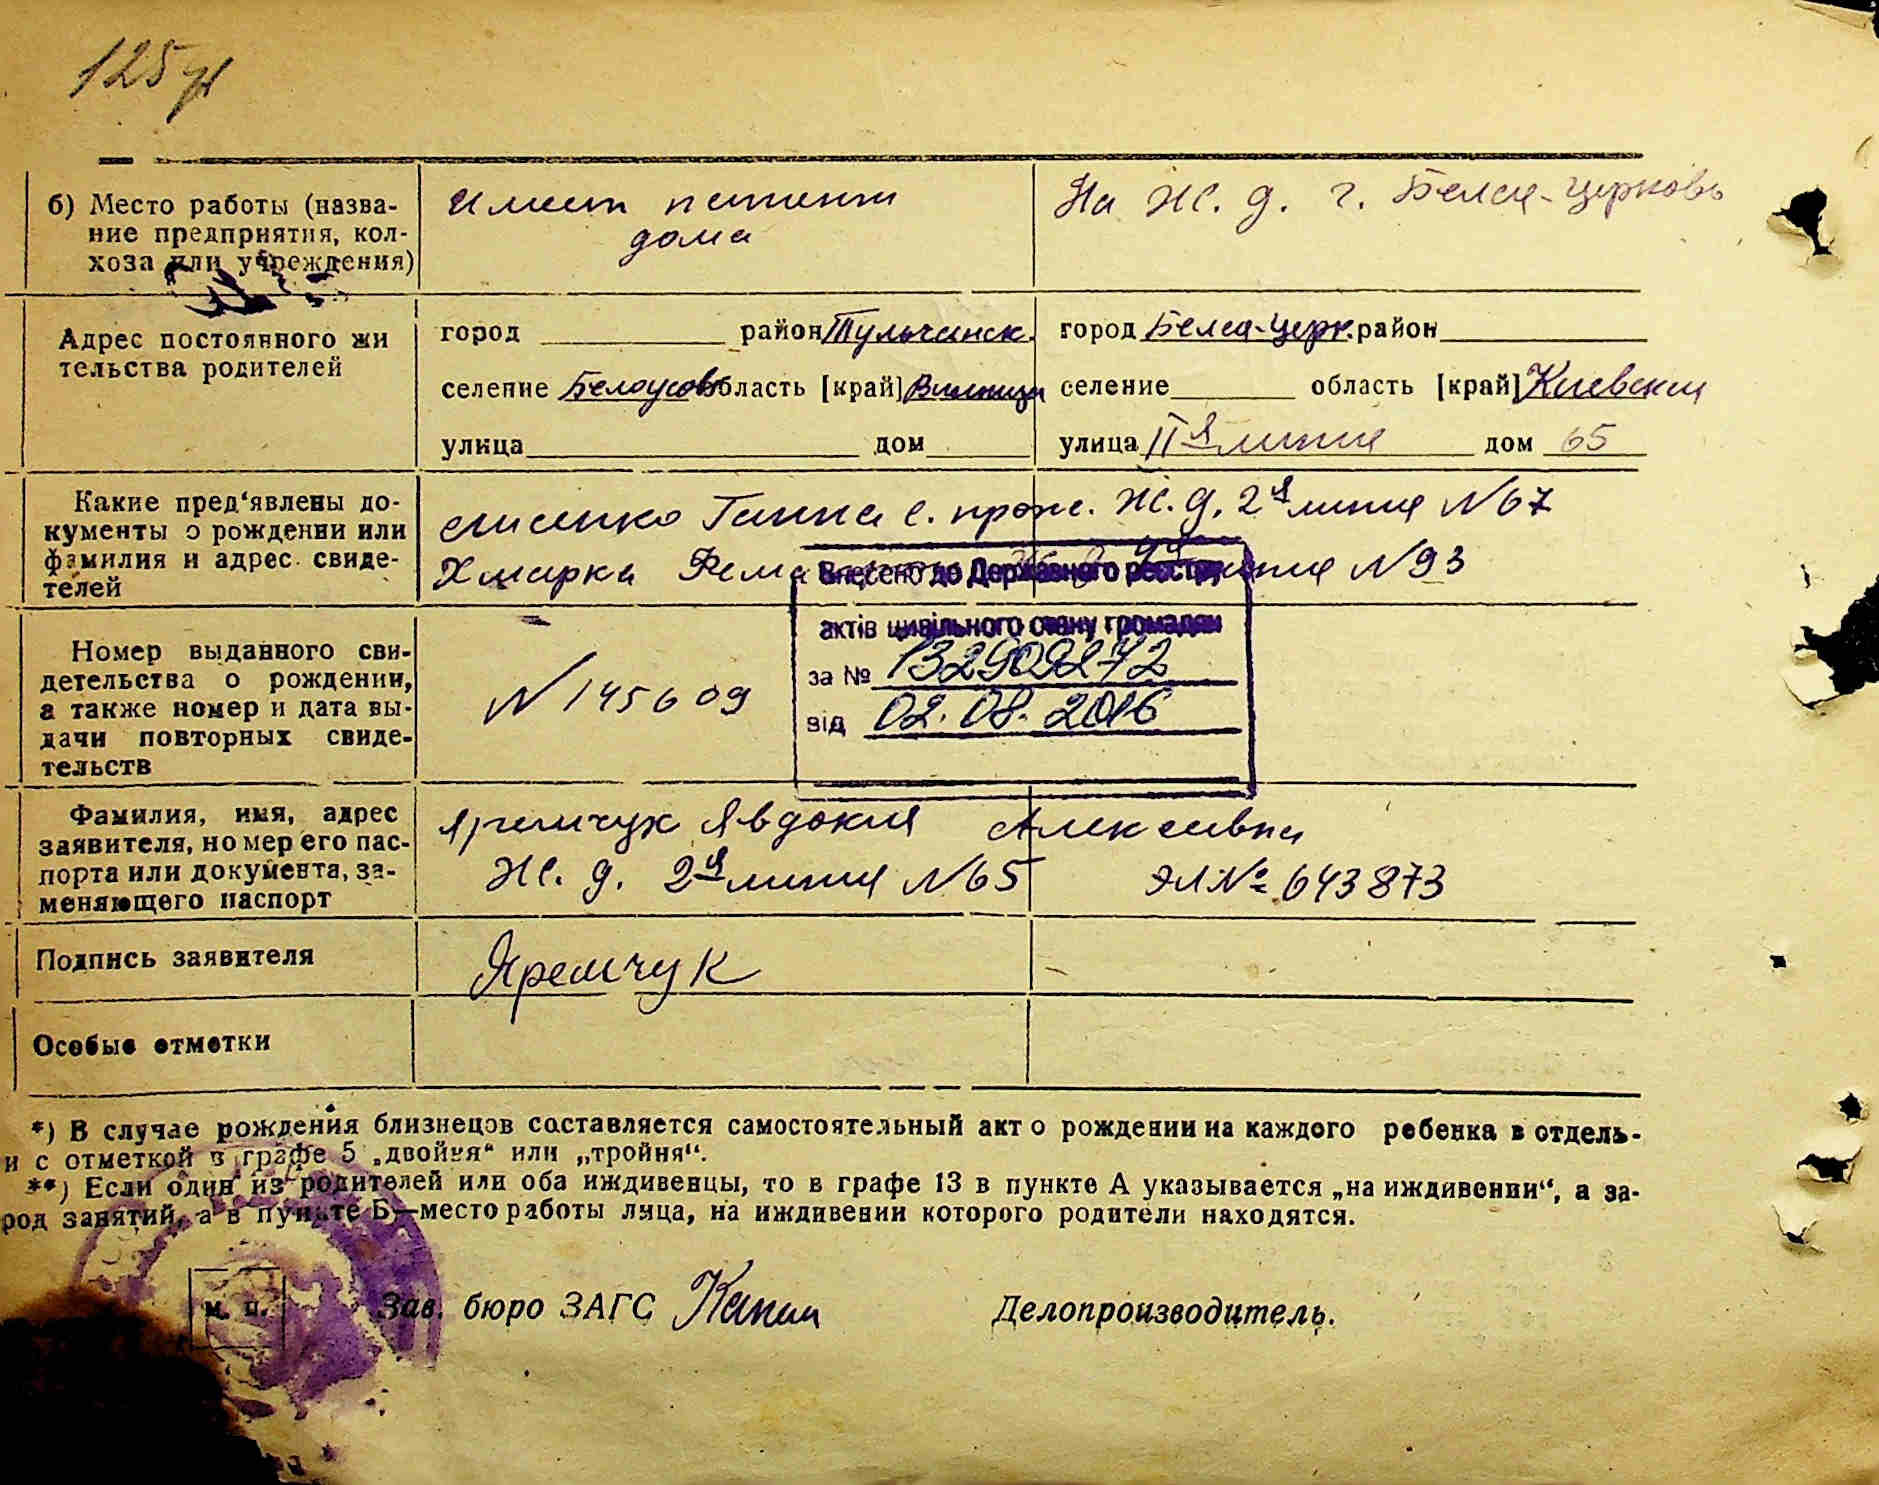 125
б) Место работы (назва-
ние предприятия, кол-
хоза или учреждения)
Имеет патент
дома
На Ж. д. г. Белая-Церковь
Адрес постоянного жи
тельства родителей
город район Тульчинск.
селение Белоусов область [край] Винница
улица дом
город Белая-Церк. район
селение область [край] Киевская
улица II я линия дом 65
Какие пред‘явлены до-
кументы о рождении или
фамилия и адрес свиде-
телей
Ганна с. прож. Ж. д. 2я линия N 67
Хмарка линия N 93
Внесено до Державного реєстру
актів цивільного стану громадян
за № 132909272
від 02.08.2016
Номер выданного сви-
детельства о рождении,
а также номер и дата вы-
дачи повторных свиде-
тельств
N 145609
Фамилия, имя, адрес
заявителя, номер его пас-
порта или документа, за-
меняющего паспорт
Яремчук Явдокия Алексеивна
Ж. д. 2я линия N 65 ЭЛ № 643873
Подпись заявителя
Яремчук
Особые отметки
*) В случае рождения близнецов составляется самостоятельный акт о рождении на каждого ребенка в отдель-
и с отметкой в графе 5 „двойня“ или „тройня“.
**) Если один из родителей или оба иждивенцы, то в графе 13 в пункте А указывается „на иждивении“, а за-
род занятий, а в пункте Б—место работы лица, на иждивении которого родители находятся.
м. п.
Зав. бюро ЗАГС
Делопроизводитель.